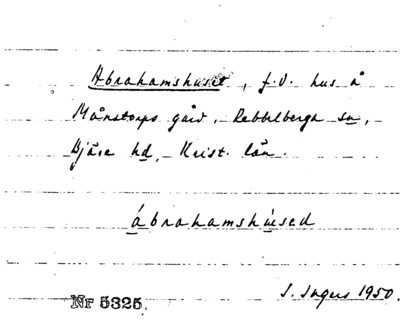 Abrahamshuset, f.d. hus å
Månstorps gård, Rebbelberga sn,
Bjäre hd, Krist. län.
ábrahamshúsed
I. Ingers 1950.
Nr 5325.